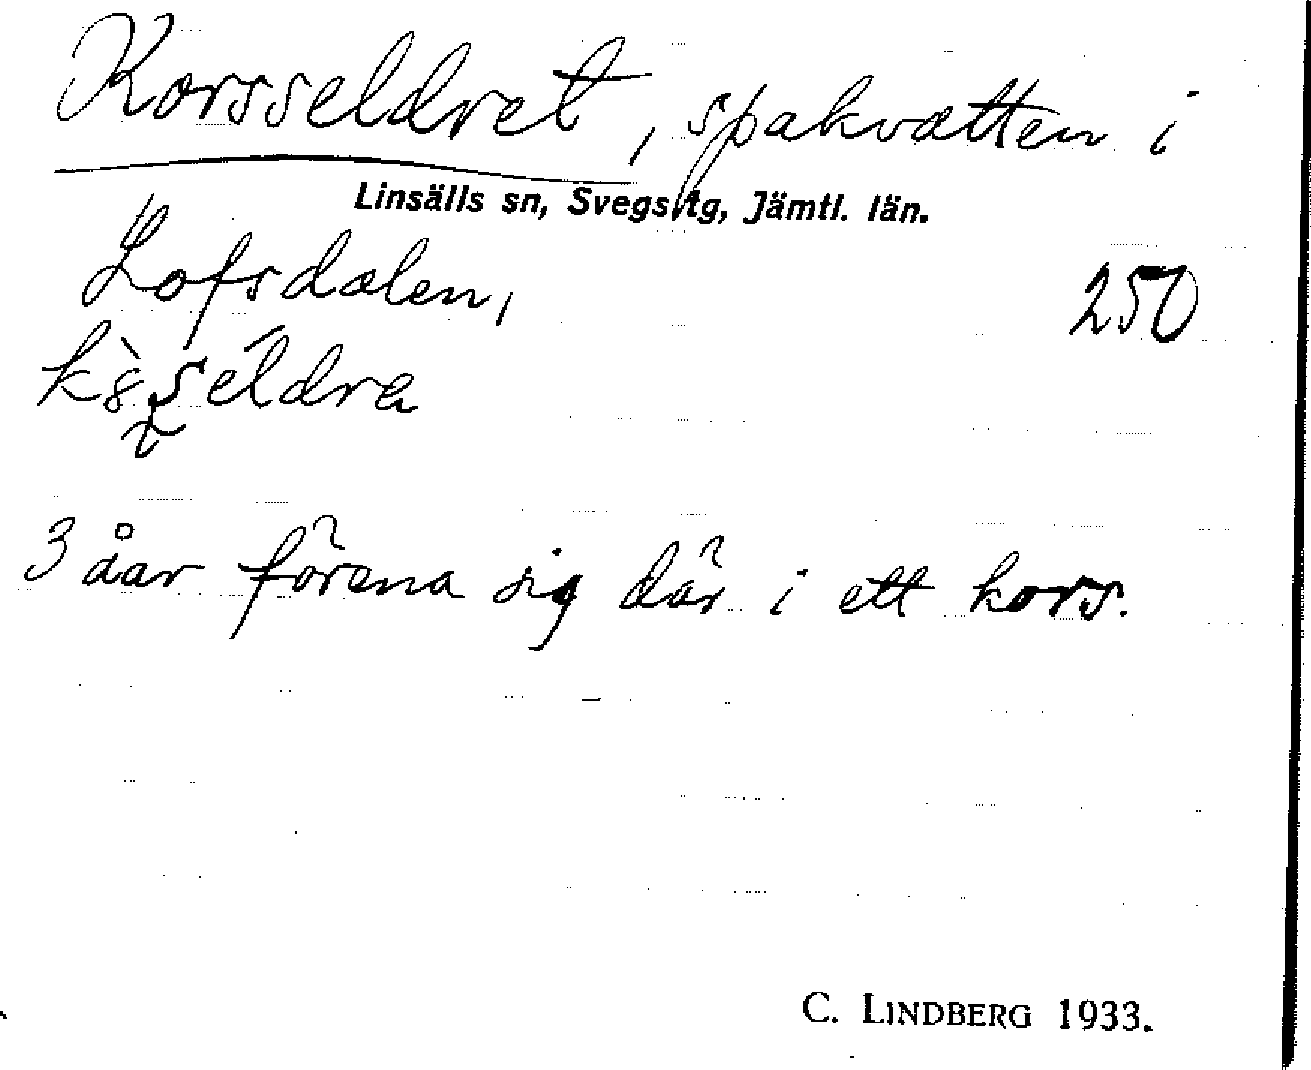 Korsseldret, spakvatten i
Linsälls sn, Svegs tg, Jämtl. län.
Lofsdalen,
250
3 åar förena sig där i ett kors.
C. LINDBERG 1933.